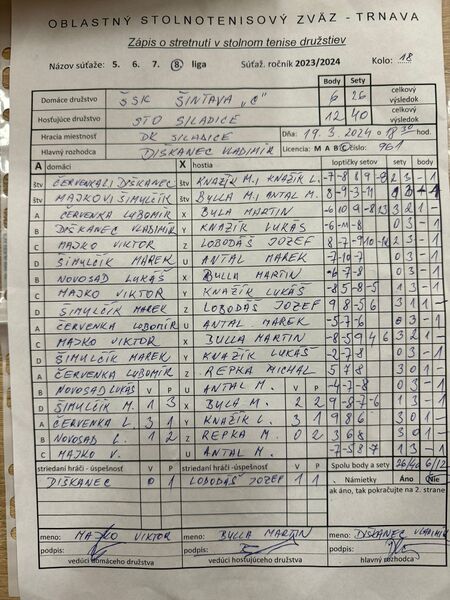 OBLASTNÝ STOLNOTENISOVÝ ZVÄZ - TRNAVA
Zápis o stretnutí v stolnom tenise družstiev
Názov súťaže: 5. 6. 7. 8. liga Súťaž. ročník 2023/2024 Kolo: 18
Body Sety
Domáce družstvo ŠSK ŠINTAVA „C" 6 26 celkový výsledok
Hosťujúce družstvo STO SILADICE 12 40 celkový výsledok
Hracia miestnosť DK SILADICE Dňa: 19.3.2024 o 18 30 hod.
Hlavný rozhodca DIŠKANEC VLADIMÍR Licencia: M A B C číslo: 961
A domáci X hostia loptičky setov sety body
štv ČERVENKA L. DIŠKANEC štv KNAŽÍK M., KNAŽÍK L. 2 3 - 1
štv MAJKO V. ŠIMULČÍK štv BULLA M., ANTAL M. 8 -9 -3 -11 1 3 - 1
A ČERVENKA ĽUBOMÍR X BULA MARTIN 3 2 1 -
B DIŠKANEC VLADIMÍR Y KNAZÍK LUKÁŠ -6 -11 -8 0 3 - 1
C MAJKO VIKTOR Z LOBODÁŠ JOZEF 2 3 - 1
D ŠIMULČÍK MAREK U ANTAL MAREK -10 -7 -8 0 3 - 1
B NOVOSAD LUKÁŠ X BULLA MARTIN -6 -7 -8 0 3 - 1
C MAJKO VIKTOR Y KNAZÍK LUKÁŠ -8 5 -8 -5 1 3 - 1
D ŠIMULČÍK MAREK Z LOBODÁŠ JOZEF 9 8 -5 6 3 1 1 -
A ČERVENKA ĽUBOMÍR U ANTAL MAREK -5 -7 -6 0 3 - 1
C MAJKO VIKTOR X BULLA MARTIN -8 5 9 -4 6 3 2 1 -
D ŠIMULČÍK MAREK Y KNAZÍK LUKÁŠ -2 -7 -8 0 3 - 1
A ČERVENKA ĽUBOMÍR Z REPKA MICHAL 5 7 8 3 0 1 -
B NOVOSAD LUKÁŠ V P U ANTAL M. V P -4 -7 -8 0 3 - 1
D ŠIMULČÍK M. 1 3 X BULA M. 2 2 9 -8 -7 -6 1 3 - 1
A ČERVENKA L. 3 1 Y KNAZÍK L. 3 1 9 8 6 3 0 1 -
B NOVOSAD L. 1 3 Z REPKA M. 0 2 3 6 8 3 0 1 -
C MAJKO V. U ANTAL M. -7 -5 8 -7 1 3 - 1
striedaní hráči - úspešnosť V P striedaní hráči - úspešnosť V P Spolu body a sety 26/40 6/12
DIŠKANEC 0 1 LOBODÁŠ JOZEF 1 1 Námietky Áno Nie
ak áno, tak pokračujte na 2. strane
meno: MAJKO VIKTOR meno: BULLA MARTIN meno: DIŠKANEC VLADIMÍR
podpis: podpis: podpis:
vedúci domáceho družstva vedúci hosťujúceho družstva hlavný rozhodca